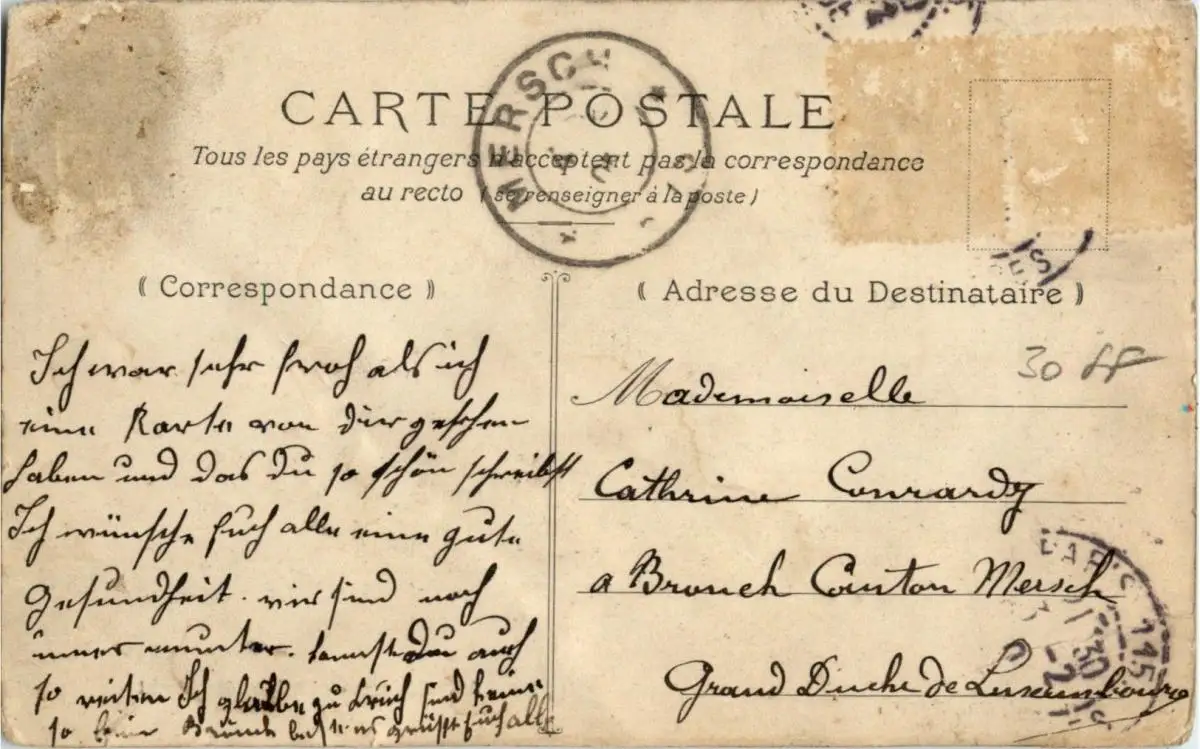 CARTE POSTALE
Tous les pays étrangers n'acceptent pas la correspondance
au recto (se renseigner à la poste)
MERSCH
Correspondance
Adresse du Destinataire
30 ff
Ich war sehr froh als ich
eine Karte von Dir gesehen
haben und das Du so schön schreibst
Ich wünsche Euch alle eine gute
Gesundheit. wir sind noch
immer munter. kannst Du auch
so reiten Ich glaube zu Bruch sind keine
so grüßt Euch alle
Mademoiselle
Cathrine Conrardy
a Brouch Canton Mersch
Grand Duche de Luxembourg
PARIS 145
30